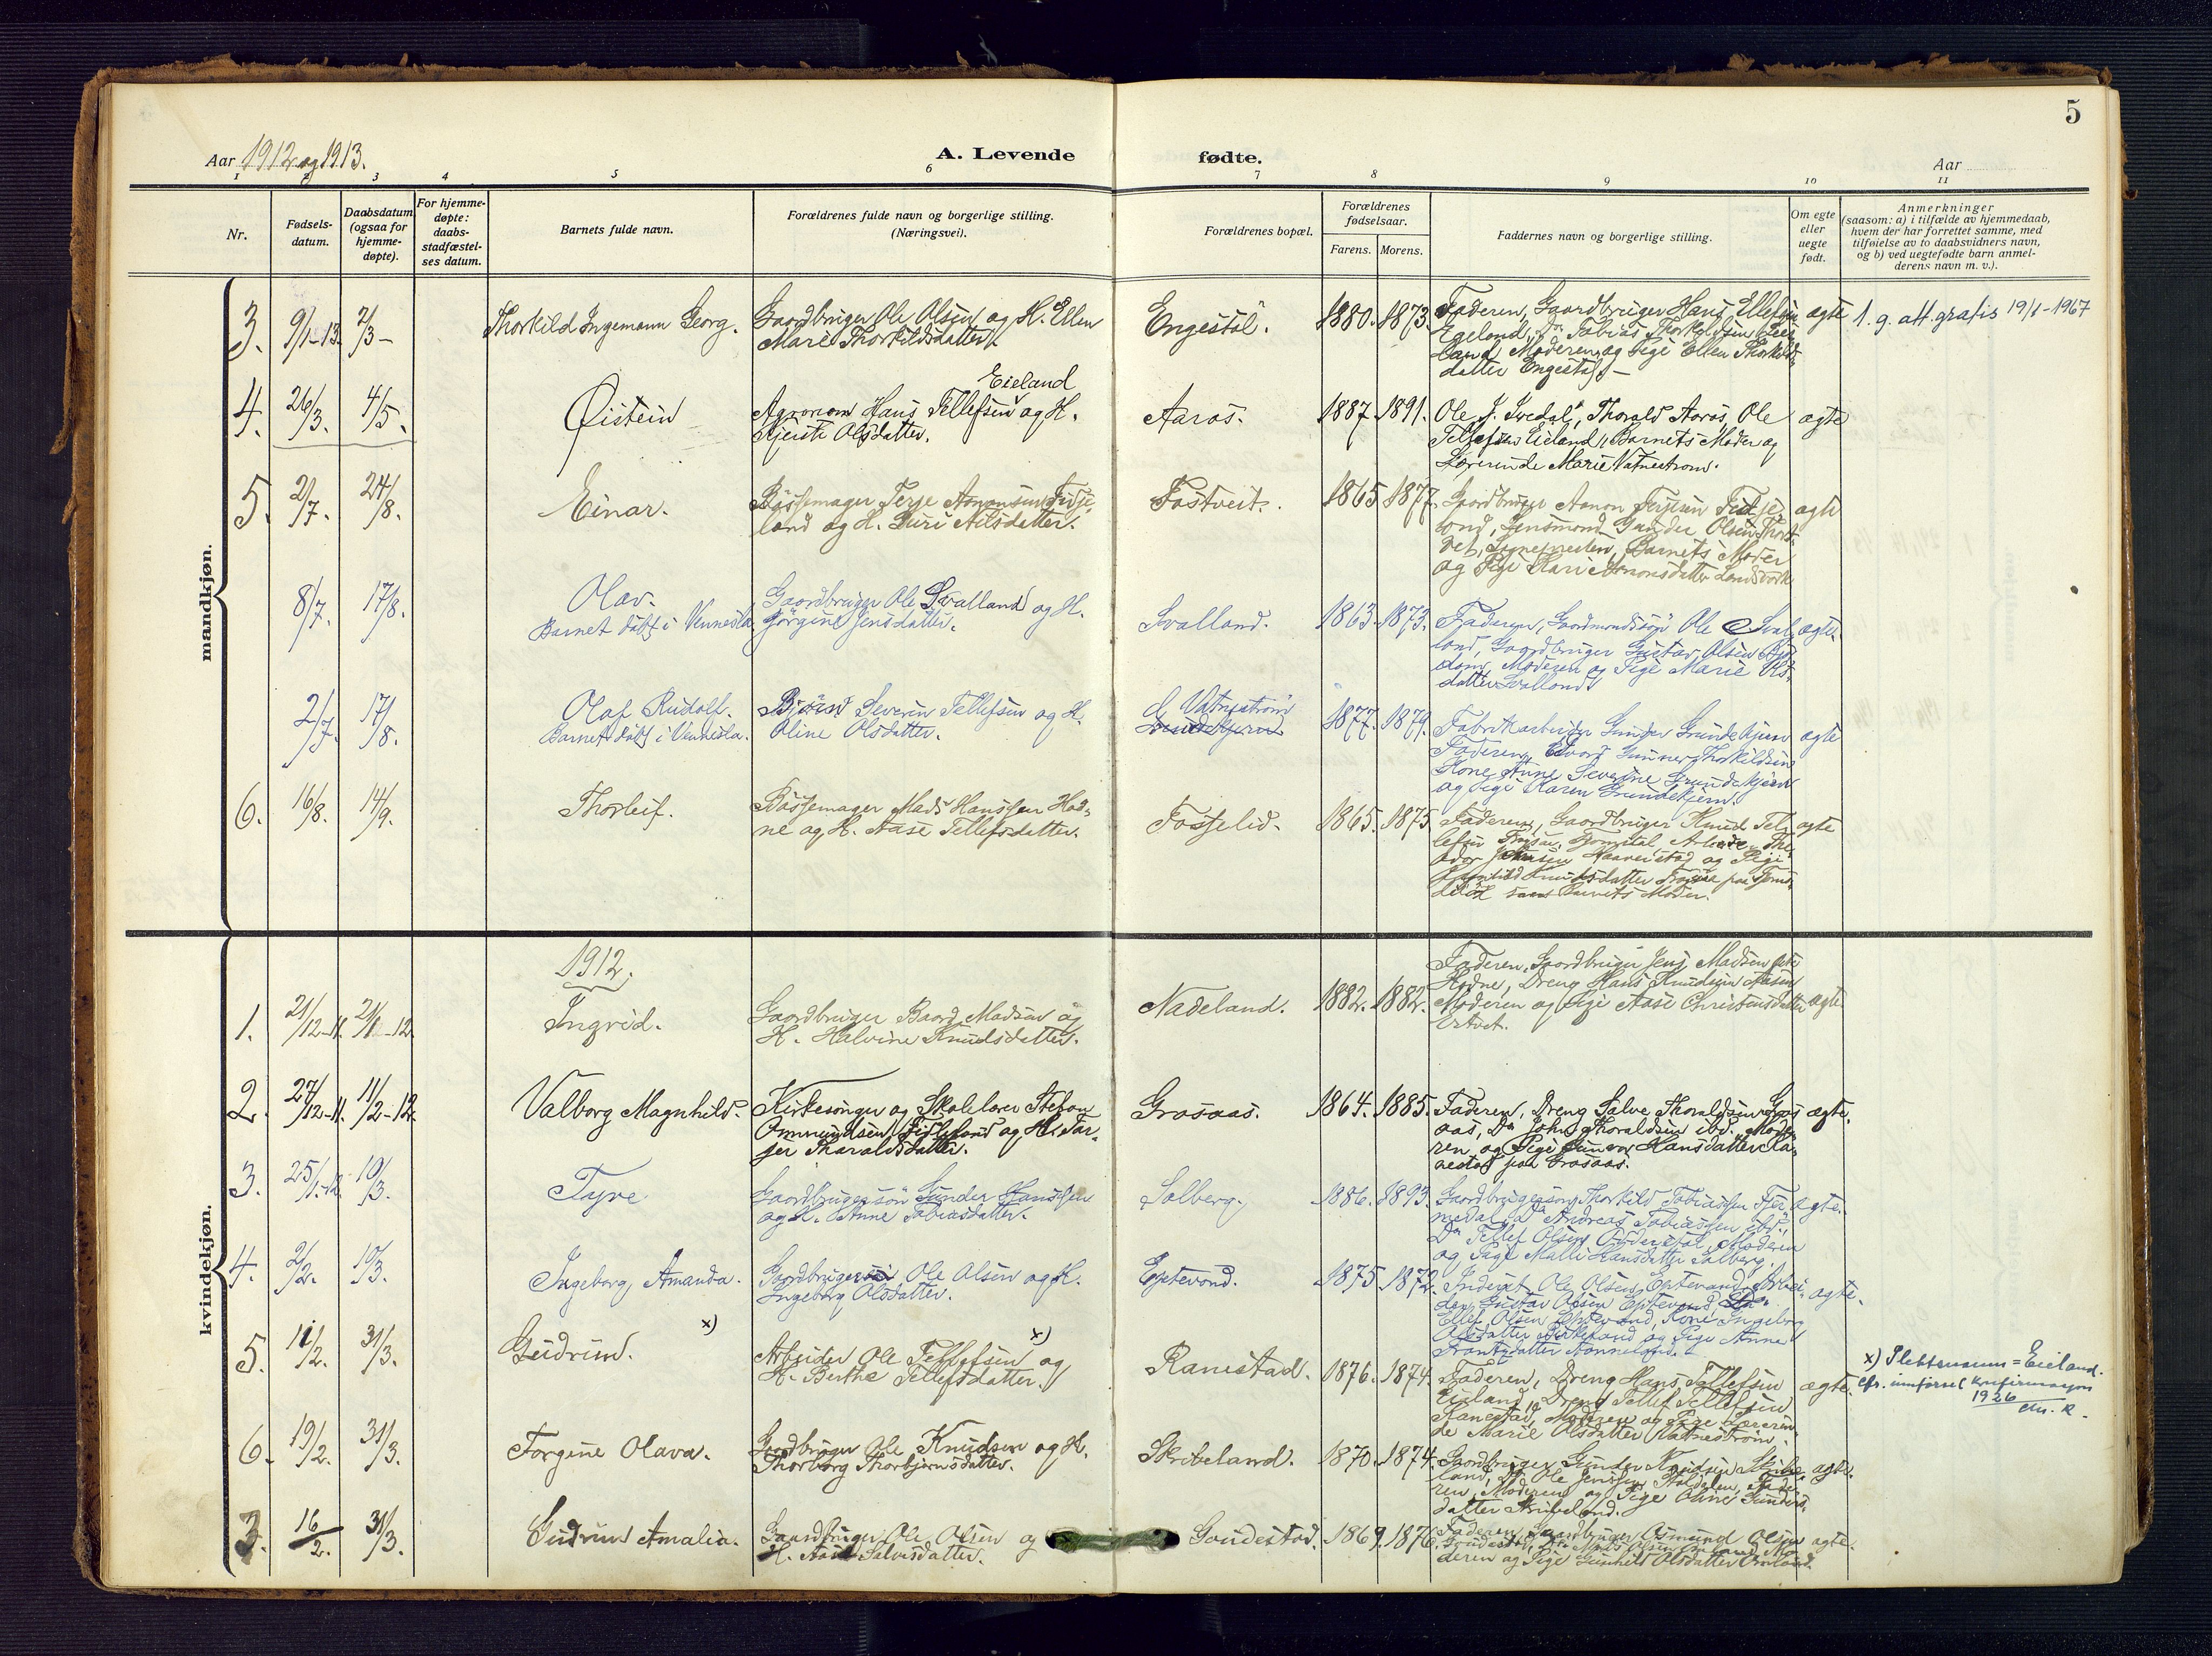 5
Aar 1912 og 1913.
A. Levende fødte.
Aar
1 2 3 4 5 6 7 8 9 10 11
Nr.
Fødsels-
datum.
Daabsdatum
(ogsaa for
hjemme-
døpte).
For hjemme-
døpte:
daabs-
stadfæstel-
ses datum.
Barnets fulde navn.
Forældrenes fulde navn og borgerlige stilling.
(Næringsvei).
Forældrenes bopæl.
Forældrenes
fødselsaar.
Farens. Morens.
Faddernes navn og borgerlige stilling.
Om egte
eller
uegte
født.
Anmerkninger
(saasom: a) i tilfælde av hjemmedaab,
hvem der har forrettet samme, med
tilføielse av to daabsvidners navn,
og b) ved uegtefødte barn anmel-
derens navn m. v.).
mandkjøn.
3. 9/1-13. 2/3-
Thorkild Ingemann Georg.
Gaardbruger Ole Olsen og H. Ellen
Marie Thorkildsdatter.
Engestøl.
1880. 1873.
Faderen, Gaardbruger Hans Ellefsen
Egeland, Dn Tobias Thorkildsen
land, Moderen og Pige Ellen Thorkilds-
datter Engestøl.
ægte
1. g. att. gratis 19/1-1967
4. 26/3. 4/5.
Øistein
Eieland
Agronom Hans Tellefsen og H.
Kjersti Olsdatter.
Aaros.
1887. 1891.
Ole J. Ivedal, Thorald Aaros, Ole
Tellefsen Eieland, Barnets Moder og
Lærerinde Marie Vatnestrøm.
ægte
5. 2/7. 24/8.
Einar.
Bøssemager Terje Aanonsen Fidje-
land og H. Guri Nilsdatter.
Fostveit.
1865 1877.
Gaardbruger Aanon Terjesen Fidje-
land, Gunder Olsen
Barnets Moder
og Pige Kari Aanonsdatter
ægte
8/7. 17/8.
Olav.
Barnet døbt i Vennesla.
Gaardbruger Ole Svalland og H.
Jørgine Jensdatter.
Svalland.
1863. 1873.
Faderen, Gaardmandssøn Ole Sval-
land, Gaardbruger Gustav Olsen
Moderen og Pige Marie Ols-
datter Svalland.
ægte.
2/7. 17/8.
Olaf Rudolf.
Barnet døbt i Vennesla.
Severin Tellefsen og H.
Oline Olsdatter.
Vatnestrøm
1877. 1879.
Fabrikarbeider Gunder Grundekjern
Faderen, Gunner Thorkildsen
Kone Anne Severine Grundekjern
og Pige Karen Grundekjern.
ægte
6. 16/8. 14/9.
Thorleif.
Bøssemager Mads Hanssen Hod-
ne og H. Aase Tellefsdatter.
Fosselid.
1865. 1875.
Faderen, Gaardbruger Knud Tel-
lefsen
og Pige
Knudsdatter
samt Barnets Moder.
ægte
kvindekjøn.
1912.
1. 21/12-11. 21/1-12.
Ingrid.
Gaardbruger Baard Madsen og
H. Halvine Knudsdatter.
Nadeland.
1882. 1882.
Faderen, Gaardbruger Jens Madsen
Hodne, Dreng Hans Knudsen
Moderen og Pige Aase Christensdatter
ægte
2. 27/12-11. 11/2-12.
Valborg Magnhild.
Kirkesanger og Skolelærer Stefan
Ommundsen og H. Tar-
jer Tharaldsdatter.
Grosaas.
1864. 1885.
Faderen, Dreng Salve Thoraldsen Gros-
aas, Dn John Thoraldsen ibd. Mode-
ren og Pige Gunvor Hansdatter Ra-
nestad paa Grosaas.
ægte.
3. 25/1-12. 10/3.
Tyre
Gaardbrugersøn Gunder Hanssen
og H. Anne Tobiasdatter.
Solberg.
1886. 1893.
Gaardbrugersøn Thorkild Tobiassen Fjer-
medal, Dn Andreas Tobiassen ibd.,
Dn Tellef Olsen Moderen
og Pige Malli Hansdatter Solberg.
ægte.
4. 2/2. 10/3.
Ingeborg Amanda.
Gaardbruger Ole Olsen og H.
Ingeborg Olsdatter.
Eptevand.
1875 1872.
Inderst Ole Olsen Eptevand, Arbei-
der Gustav Olsen Eptevand,
Ellef Olsen Eptevand, Kone Ingeborg
Olsdatter Birkeland og Pige Anne
ægte.
5. 11/2. 31/3.
Gudrun. x)
Arbeider Ole Tellefsen x) og
H. Berthe Tellefsdatter.
Ranestad.
1876. 1874.
Faderen, Dreng Hans Tellefsen
Eieland, Dreng Tellef Tellefsen
Ranestad, Moderen og Pige Lærerin-
de Marie Olsdatter Vatnestrøm.
ægte.
x) Slektsnavn = Eieland.
cfr. innførsel konfirmasjon
1926
6. 19/2. 31/3.
Torgine Olava.
Gardbruger Ole Knudsen og H.
Thorborg Thorbjørnsdatter.
Skribeland.
1870. 1874.
Gaardbruger Gunder Skribe-
land, Dn Ole Jenssen Fade-
ren, Moderen og Pige Oline Gunders-
datter Skribeland.
ægte.
16/2. 31/3.
Gudrun Amalia.
Gaardbruger Ole Olsen og
H. Aase Salvesdatter.
Goudestad.
1869. 1876.
Faderen, Gaardbruger Asmund Olsen
Mo-
deren og Pige Gunhild Olsdatter
ægte.